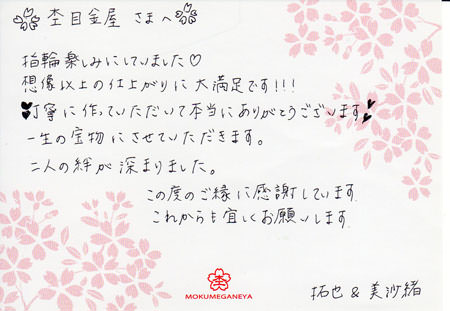 杢目金屋 さまへ
指輪楽しみにしていました♡
想像以上の仕上がりに大満足です!!!
♥丁寧に作っていただいて本当にありがとうございます♥
一生の宝物にさせていただきます。
二人の絆が深まりました。
この度のご縁に感謝しています
これからも宜しくお願いします
杢
MOKUMEGANEYA
拓也 & 美沙緒